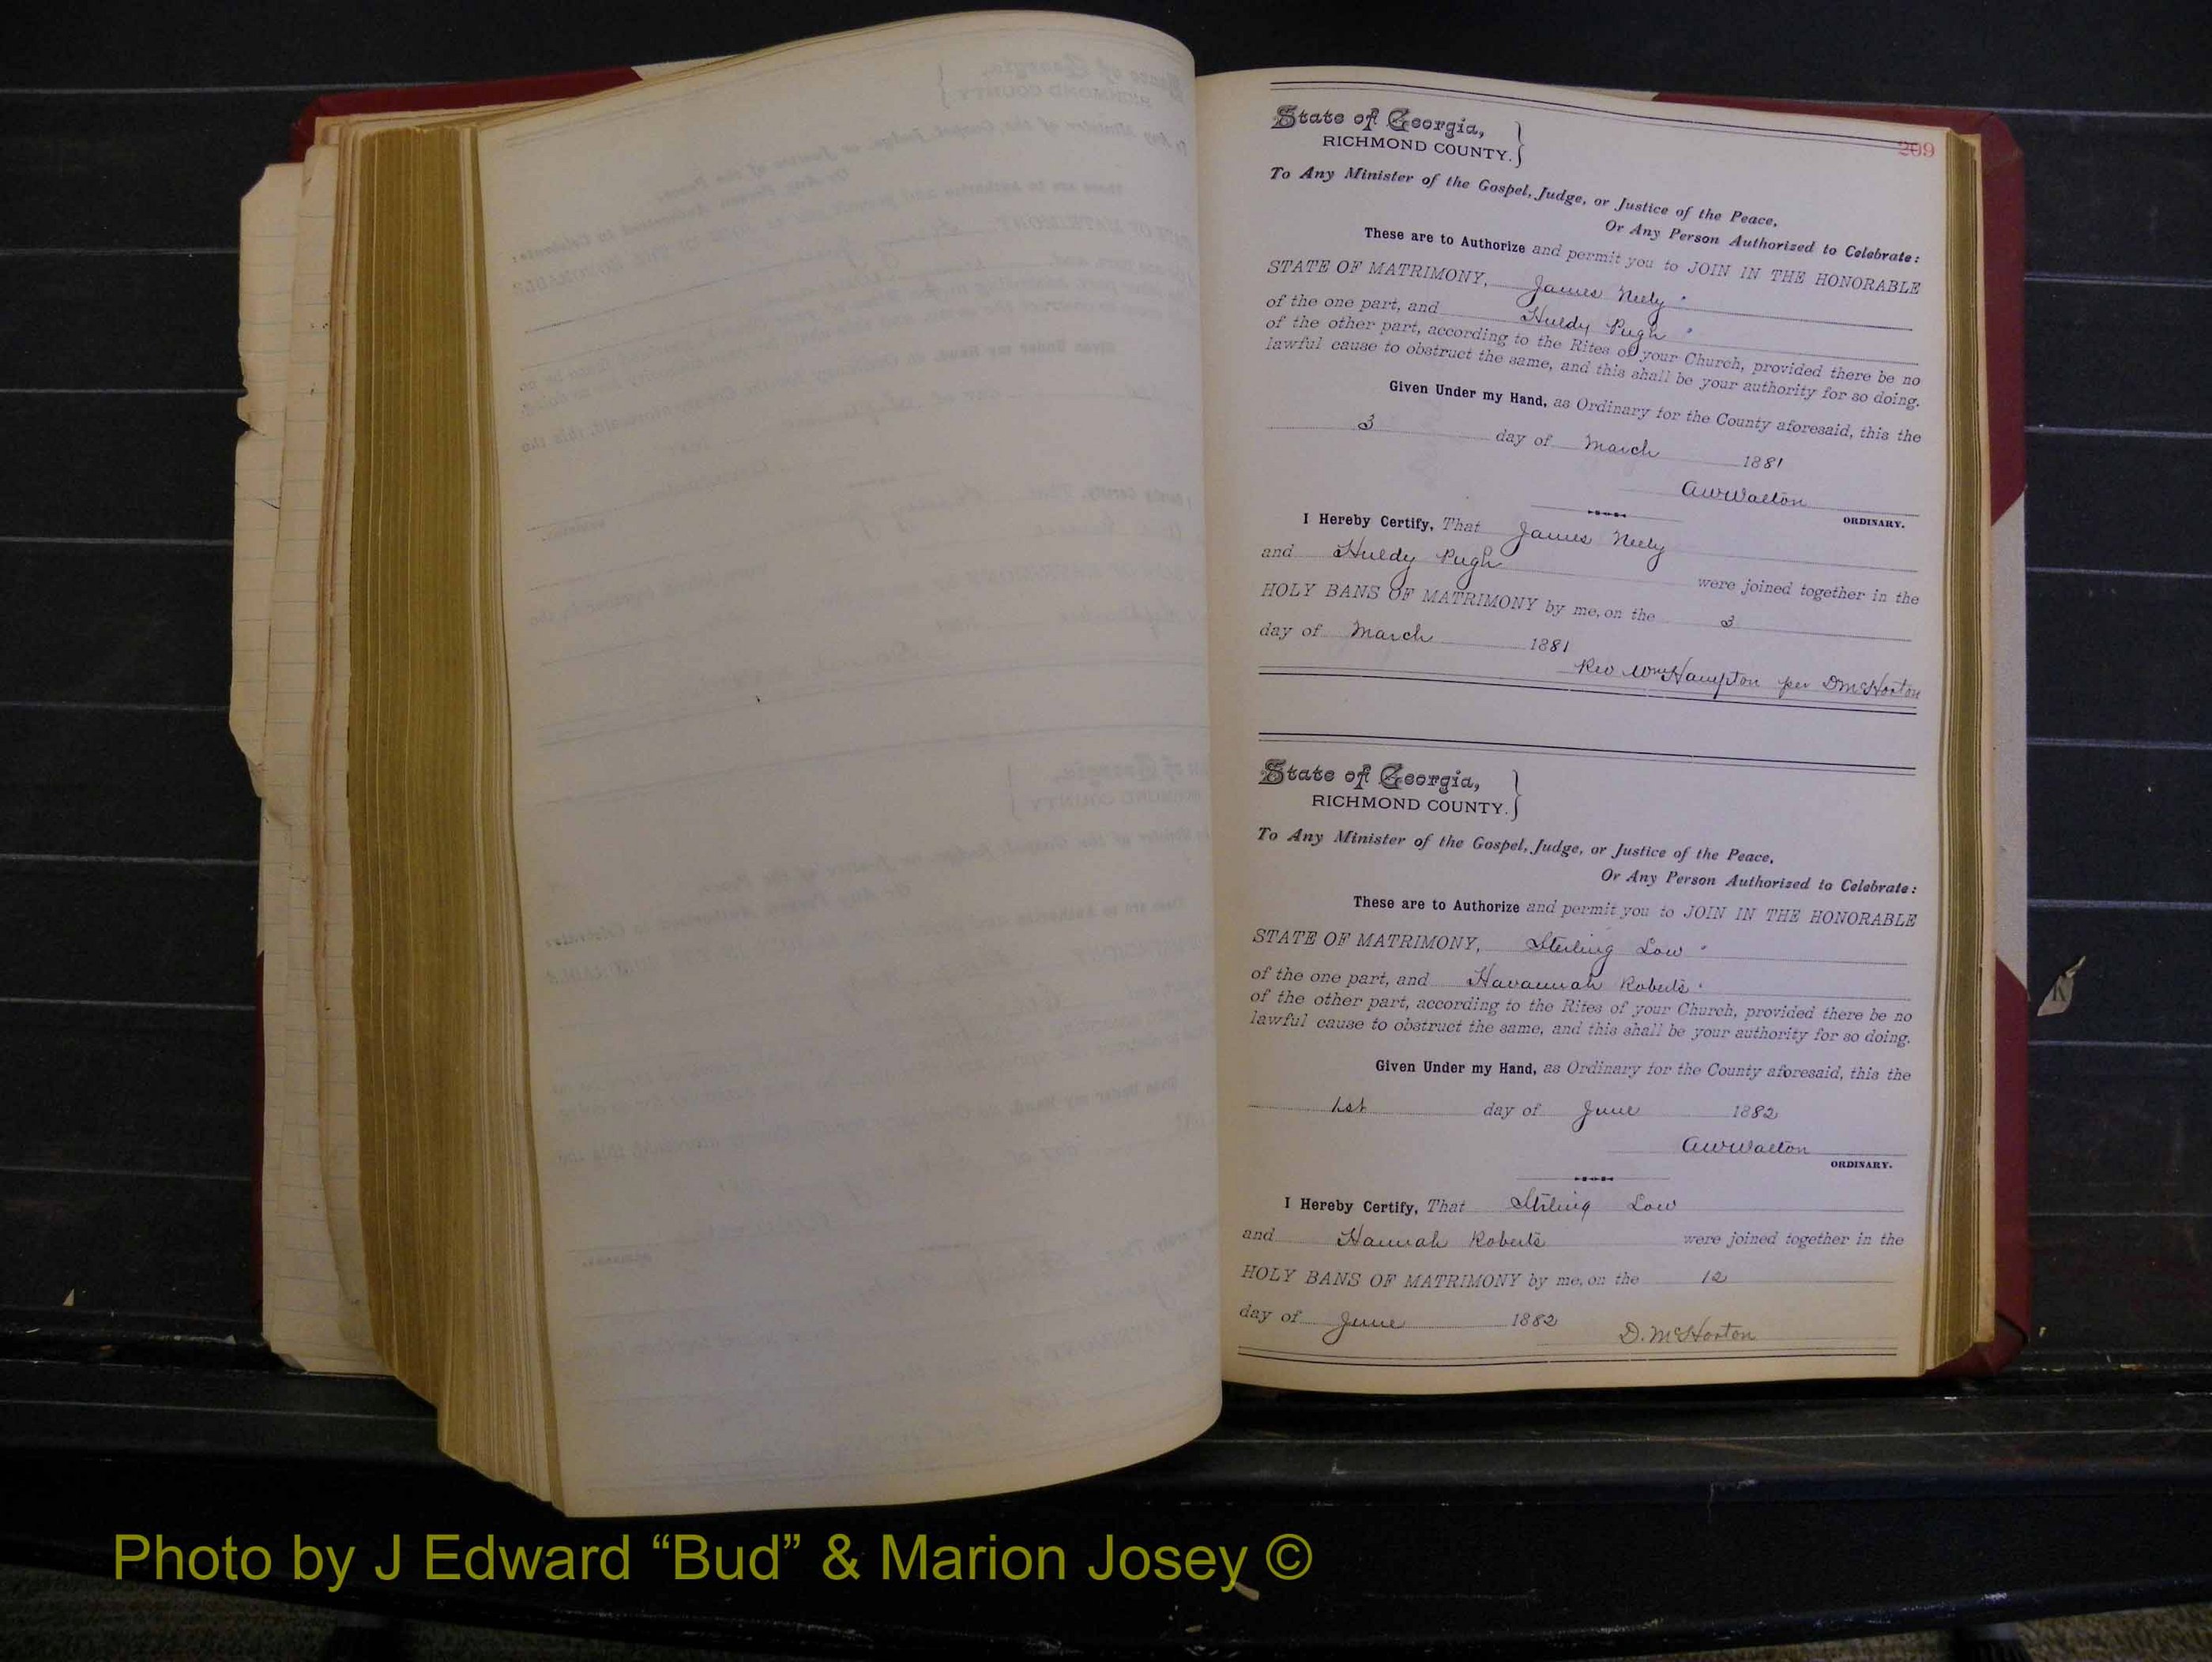 209
State of Georgia,
RICHMOND COUNTY.
To Any Minister of the Gospel, Judge, or Justice of the Peace,
Or Any Person Authorized to Celebrate:
These are to Authorize and permit you to JOIN IN THE HONORABLE
STATE OF MATRIMONY, James Neely
of the one part, and Huldy Pugh
of the other part, according to the Rites of your Church, provided there be no
lawful cause to obstruct the same, and this shall be your authority for so doing.
Given Under my Hand, as Ordinary for the County aforesaid, this the
3 day of March 1881
AWWalton
ORDINARY.
I Hereby Certify, That James Neely
and Huldy Pugh were joined together in the
HOLY BANS OF MATRIMONY by me, on the 3
day of March 1881
Rev Wm Hampton per D McHorton
State of Georgia,
RICHMOND COUNTY.
To Any Minister of the Gospel, Judge, or Justice of the Peace,
Or Any Person Authorized to Celebrate:
These are to Authorize and permit you to JOIN IN THE HONORABLE
STATE OF MATRIMONY, Sterling Low
of the one part, and Havannah Roberts
of the other part, according to the Rites of your Church, provided there be no
lawful cause to obstruct the same, and this shall be your authority for so doing.
Given Under my Hand, as Ordinary for the County aforesaid, this the
1st day of June 1882
AWWalton
ORDINARY.
I Hereby Certify, That Stirling Low
and Hannah Roberts were joined together in the
HOLY BANS OF MATRIMONY by me, on the 12
day of June 1882
D. McHorton
Photo by J Edward “Bud” & Marion Josey ©